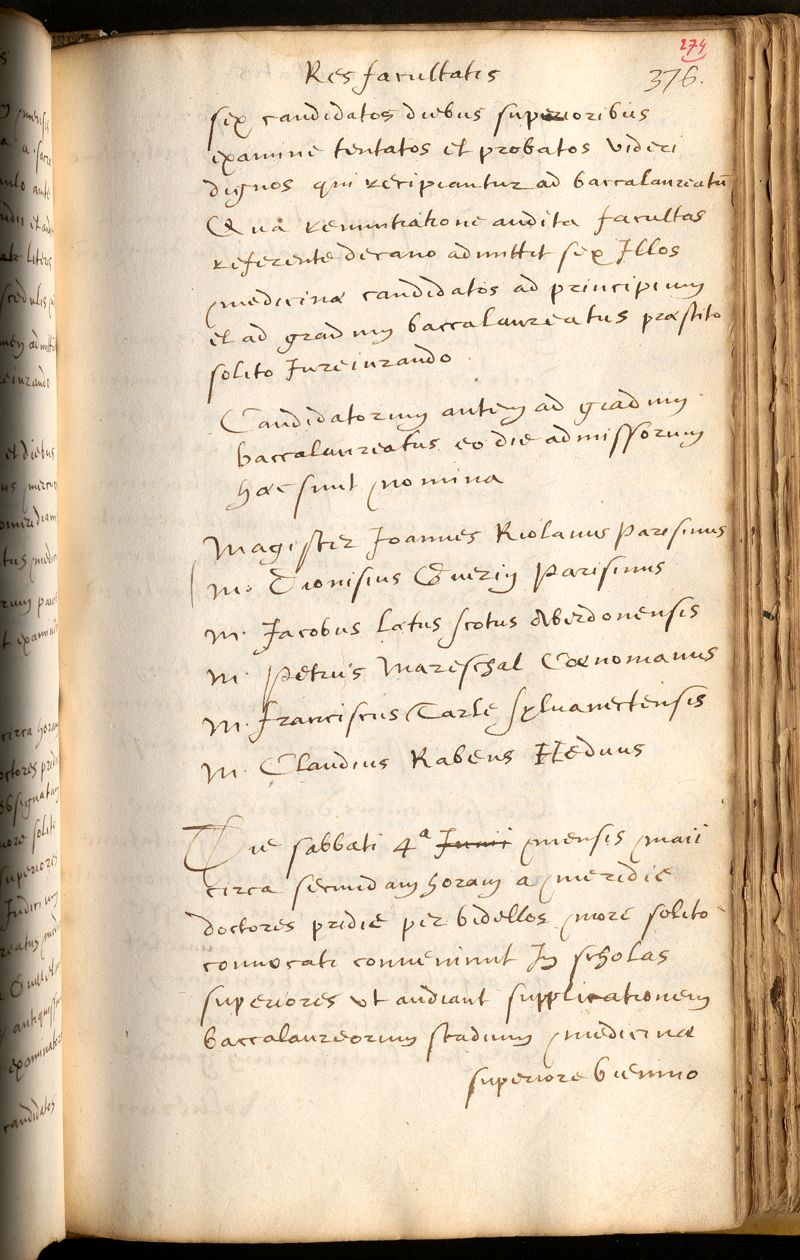 274
Res facultatis 376.
sex candidatos diebus superioribus
examine tentatos et probatos videri
dignos qui recipiantur ad baccalaureatū
Qua renuntiatione audita facultas
referente decano admittit sex Illos
medicinæ candidatos ad principium
et ad gradum baccalaureatus præstito
solito Iureiurando.
Candidatorum autem ad gradum
baccalaureatus eo die admissorum
hæc sunt nomina
Magister Joannes Riolanus Parisinus
M. Dionisius Guerin Parisinus
M. Jacobus Lætus scotus Aberdonensis
M. Petrus Mareschal Cœnomanus
M. franciscus Carle sylvanectensis
M. Claudius Rabens Hæduus
Die sabbati 4ª Junii mensis maii
circa secundam horam a meridie
doctores pridie per bidellos more solito
convocati convenirunt In scholas
superiores ut audiant supplicationem
baccalaureorum stadium medicinæ
superiore biennio